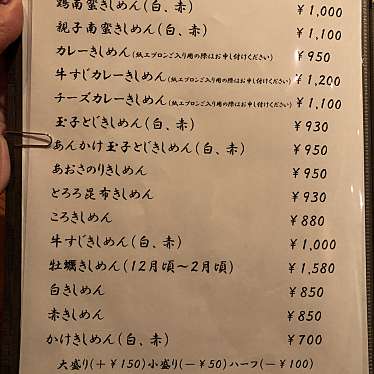 鶏南蛮きしめん(白、赤) ¥1,000
親子南蛮きしめん(白、赤) ¥1,100
カレーきしめん(紙エプロンご入り用の際はお申し付けください) ¥950
牛すじカレーきしめん(紙エプロンご入り用の際はお申し付けください) ¥1,200
チーズカレーきしめん(紙エプロンご入り用の際はお申し付けください) ¥1,100
玉子とじきしめん(白、赤) ¥930
あんかけ玉子とじきしめん(白、赤) ¥950
あおさのりきしめん ¥950
とろろ昆布きしめん ¥930
ころきしめん ¥880
牛すじきしめん(白、赤) ¥1,000
牡蠣きしめん(12月頃〜2月頃) ¥1,580
白きしめん ¥850
赤きしめん ¥850
かけきしめん(白、赤) ¥700
大盛り(+¥150)小盛り(-¥50)ハーフ(-¥100)